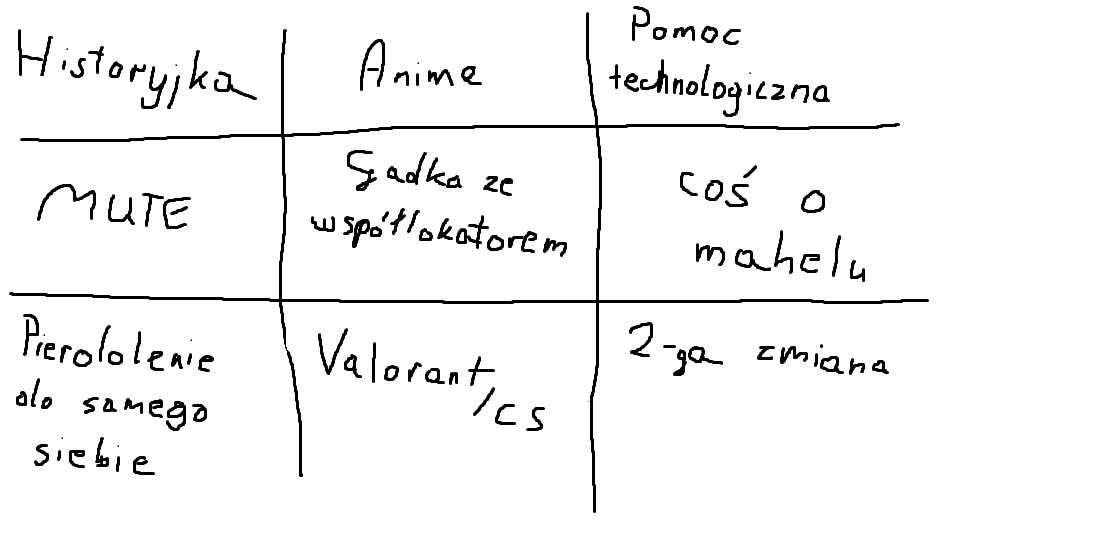 Historyjka
Anime
Pomoc
technologiczna
MUTE
Gadka ze
współlokatorem
coś o
mahelu
Pierdolenie
do samego
siebie
Valorant
/CS
2-ga zmiana